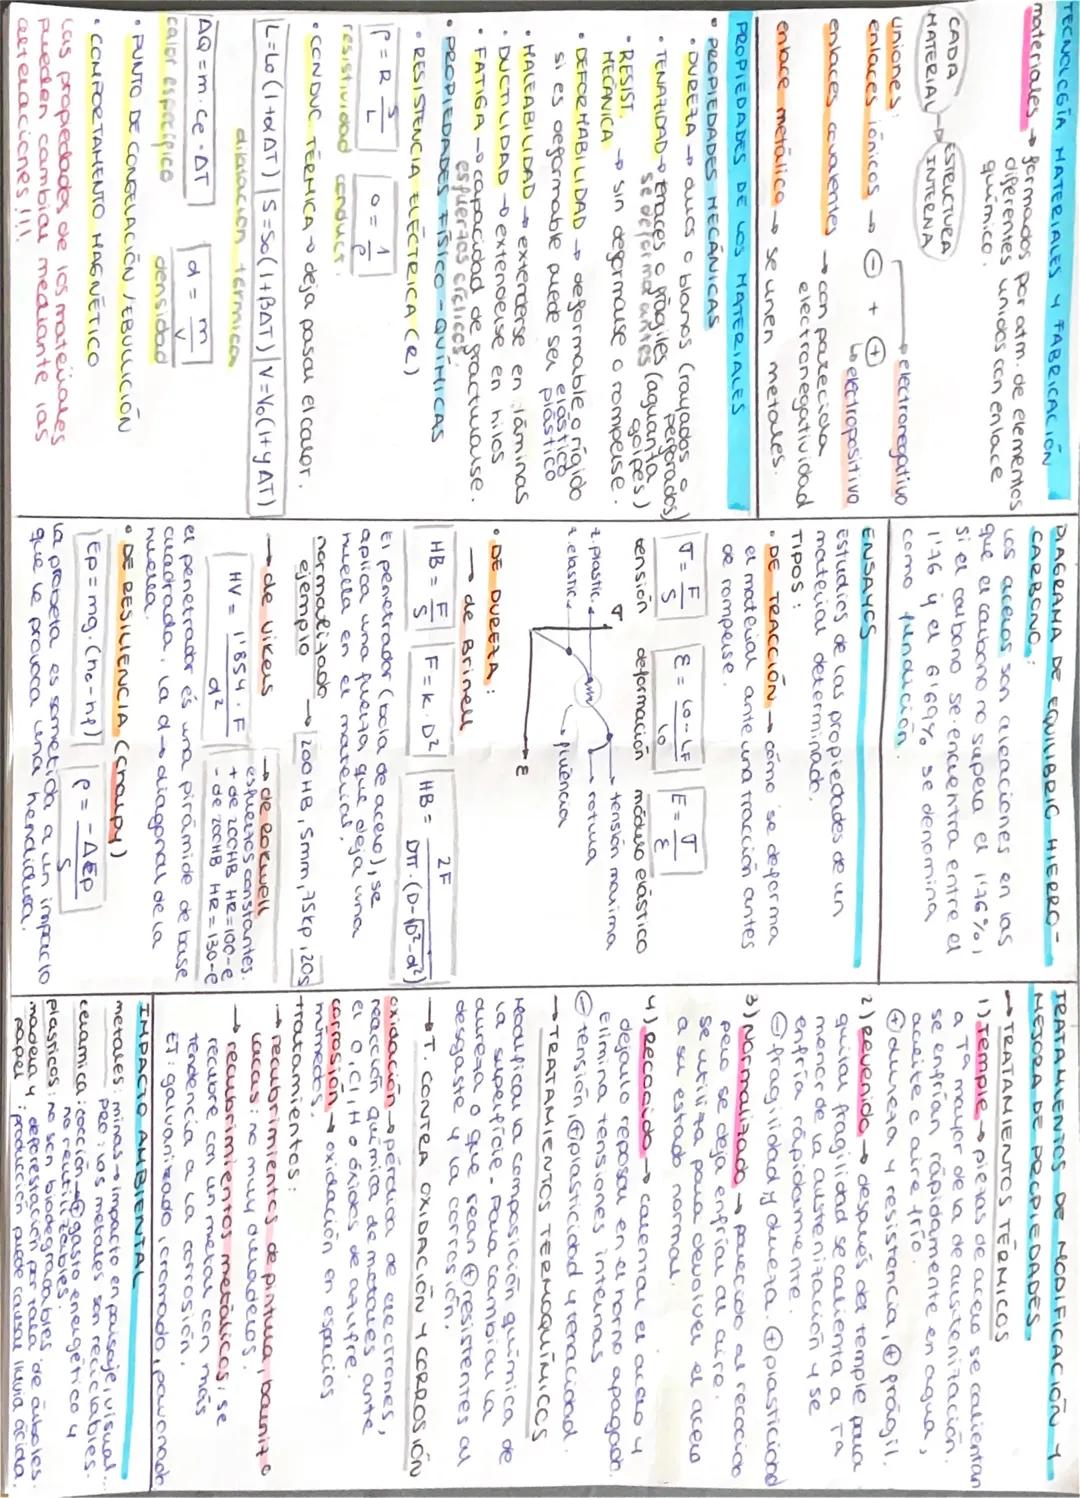 TECNOLOGÍA MATERIALES Y FABRICACIÓN
materiales → formados por atm. de elementos
diferentes unidos con enlace
químico.
CADA MATERIAL → ESTRUCTURA INTERNA
uniones:
enlaces iónicos → ⊖ + ⊕
electronegativo
↳ electropositivo
enlaces covalentes → con parecida
electronegatividad
enlace metálico → se unen metales.
PROPIEDADES DE LOS MATERIALES
• PROPIEDADES MECÁNICAS
• DUREZA → duros o blanos (rayados o
perforados)
• TENACIDAD → tenaces o frágiles (aguanta
se deforma antes golpes)
• RESIST. MECÁNICA → sin deformarse o romperse.
• DEFORMABILIDAD → deformable o rígido
si es deformable puede ser elástico
plástico
• MALEABILIDAD → extenderse en láminas
• DUCTILIDAD → extenderse en hilos
• FATIGA → capacidad de fracturarse.
esfuerzos cíclicos.
• PROPIEDADES FÍSICO-QUÍMICAS
• RESISTENCIA ELÉCTRICA (R)
ρ = R S/L
σ = 1/ρ
resistividad conduct.
• CONDUC. TÉRMICA → deja pasar el calor.
L=L₀(1+α∆T) | S=S₀(1+β∆T) | V=V₀(1+γ∆T)
dilatación térmica
∆Q = m·Ce·∆T
d = m/V
calor específico densidad
• PUNTO DE CONGELACIÓN/EBULLICIÓN
• COMPORTAMIENTO MAGNÉTICO
Las propiedades de los materiales
pueden cambiar mediante las
aereaciones!!!
DIAGRAMA DE EQUILIBRIO HIERRO-
CARBONO:
Los aceros son aleaciones en las
que el carbono no supera el 1'76%,
Si el carbono se encuentra entre el
1'76 y el 6'69% se denomina
como fundición.
ENSAYOS
Estudios de las propiedades de un
material determinado.
TIPOS:
• DE TRACCIÓN → cómo se deforma
el material ante una tracción antes
de romperse.
σ = F/S
ε = L₀-LF/L₀
E = σ/ε
tensión deformación módulo elástico
σ
z.plastic.
z.elastic.
tensión maxima
rotura
fluencia
ε
• DE DUREZA:
→ de Brinell
HB = F/S
F = K·D²
HB = 2F/Dπ·(D-√D²-d²)
El penetrador (bola de acero), se
aplica una fuerza que deja una
huella en el material,
normalizado → 200HB, 5mm, 75kp, 20s
ejemplo
→ de Vikers
HV = 1'854·F/d²
→ de Rokwell
esfuerzos constantes.
+ de 200HB HR=100-e
- de 200HB HR=130-e
el penetrador es una pirámide de base
cuadrada, la d → diagonal de la
huella.
• DE RESILIENCIA (Charpy)
Ep = mg·(h₀-hf)
ρ = -∆Ep/S
La probeta es sometida a un impacto
que le provoca una hendidura.
TRATAMIENTOS DE MODIFICACIÓN Y
MEJORA DE PROPIEDADES
→ TRATAMIENTOS TÉRMICOS
1) Temple → piezas de acero se calientan
a Tª mayor de la de austenización.
se enfrían rápidamente en agua,
aceite o aire frío.
⊕ dureza y resistencia, ⊕ frágil.
2) Revenido → después del temple para
quitar fragilidad se calienta a Tª
menor de la austenización y se
enfría rápidamente.
⊖ fragilidad y dureza. ⊕ plasticidad
3) Normalizado → parecido al recocido
pero se deja enfriar al aire.
se utiliza para devolver el acero
a su estado normal.
4) Recocido → calentar el acero y
dejarlo reposar en el horno apagado.
Elimina tensiones internas
⊖ tensión, ⊕ plasticidad y tenacidad.
→ TRATAMIENTOS TERMOQUÍMICOS
Modificar la composición química de
la superficie - Para cambiar la
dureza o que sean ⊕ resistentes al
desgaste y la corrosión.
→ T. CONTRA OXIDACIÓN Y CORROSIÓN
oxidación → pérdida de electrones,
reacción química de metales ante
el O, Cl, H o óxidos de azufre.
corrosión → oxidación en espacios
húmedos.
tratamientos:
→ recubrimientos de pintura, barniz o
lacas: no muy duradero.
→ recubrimientos metálicos, se
recubre con un metal con más
tendencia a la corrosión.
EJ: galvanizado, cromado, pavonado
IMPACTO AMBIENTAL
metales: minas → impacto en paisaje, visual...
pero: los metales son reciclables.
cerámica: cocción → ⊕ gasto energético y
no reutilizables.
plásticos: no son biodegradables.
madera y papel: deforestación por tala de árboles.
producción puede causar lluvia ácida.